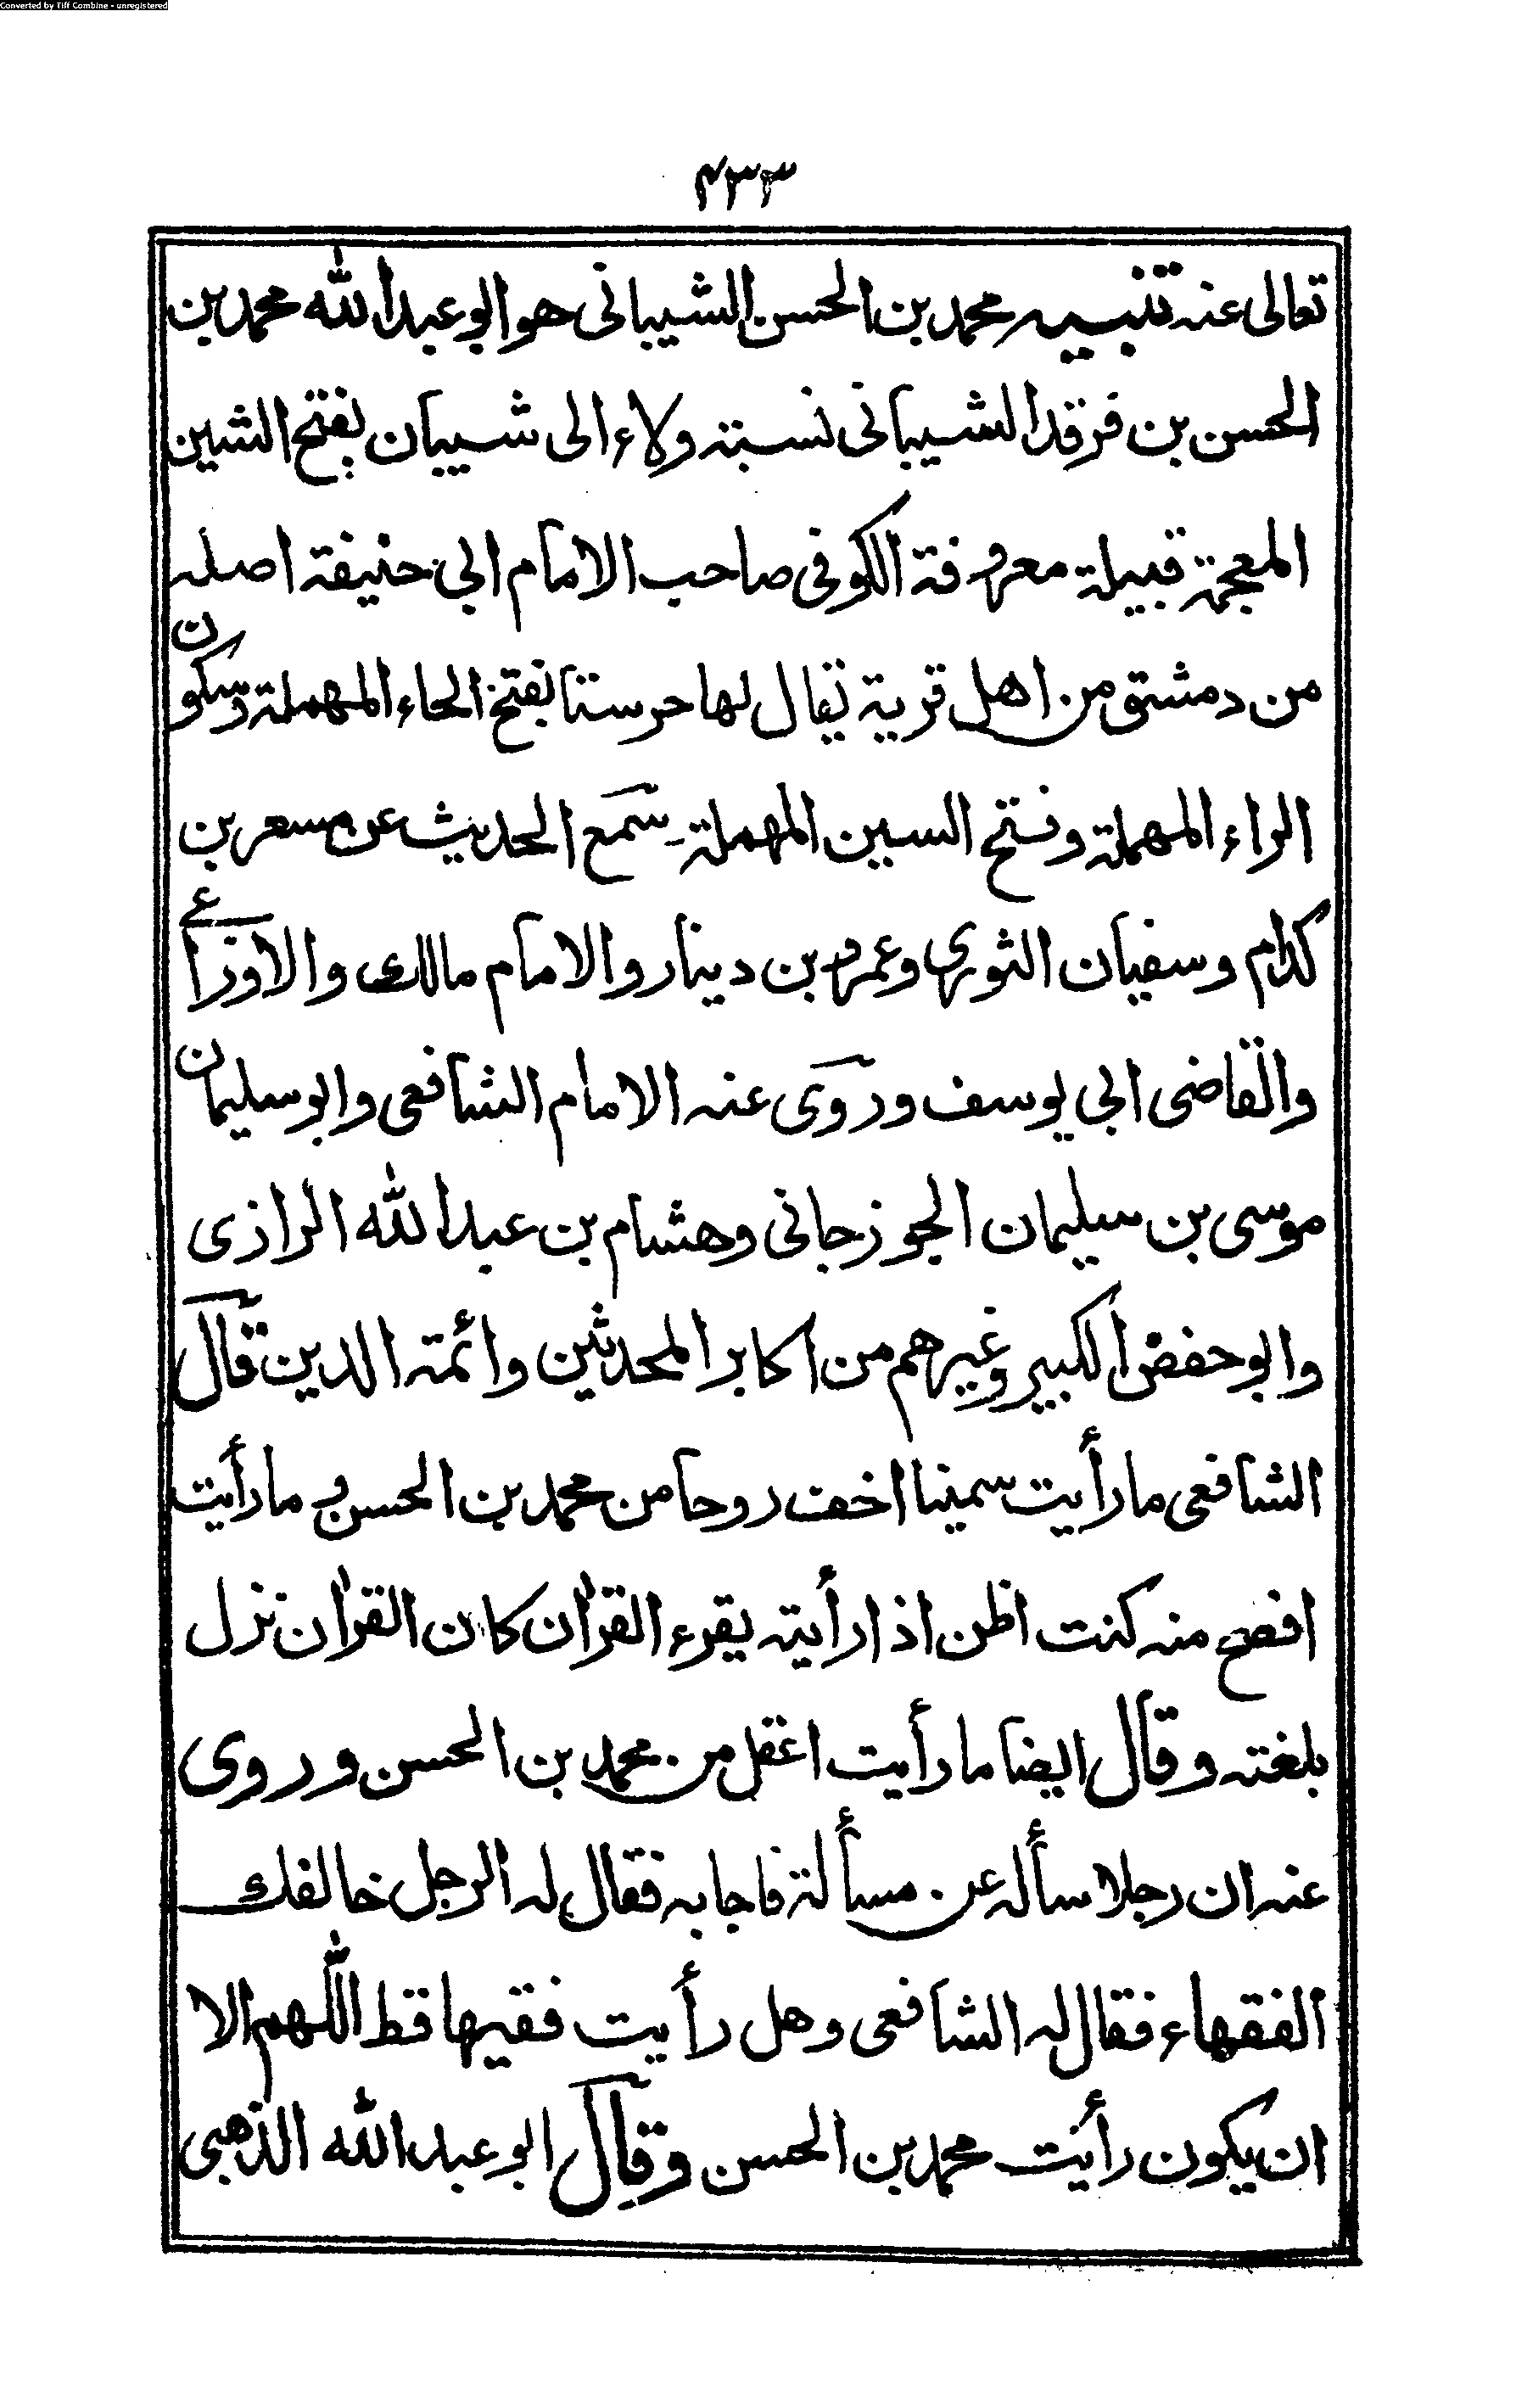 Converted by Tiff Combine - unregistered
۴۳۳
تعالى عنه تنبيه محمد بن الحسن الشيبانى هو ابو عبد الله محمد بن
الحسن بن فرقد الشيبانى نسبته ولاء الى شيبان بفتح الشين
المعجمة قبيلة معروفة الكوفى صاحب الامام ابى حنيفة اصله
من دمشق من اهل قرية يقال لها حرستا بفتح الحاء المهملة وسكون
الراء المهملة وفتح السين المهملة سمع الحديث عن مسعر بن
كدام وسفيان الثورى وعمرو بن دينار والامام مالك والاوزاعے
والقاضى ابى يوسف وروى عنه الامام الشافعى وابو سليمان
موسى بن سليمان الجوزجانى وهشام بن عبد الله الرازى
وابو حفض الكبير وغيرهم من اكابر المحدثين وائمة الدين قال
الشافعى ما رأيت سمينا اخف روحا من محمد بن الحسن و ما رأيت
افصح منه كنت اظن اذا رأيته يقرء القرآن كان القرآن نزل
بلغته وقال ايضا ما رأيت اعقل من محمد بن الحسن وروى
عنه ان رجلا سأله عن مسألة فاجابه فقال له الرجل خالفك
الفقهاء فقال له الشافعى وهل رأيت فقيها قط اللّٰهم الا
ان يكون رأيت محمد بن الحسن وقال ابو عبد الله الذهبى